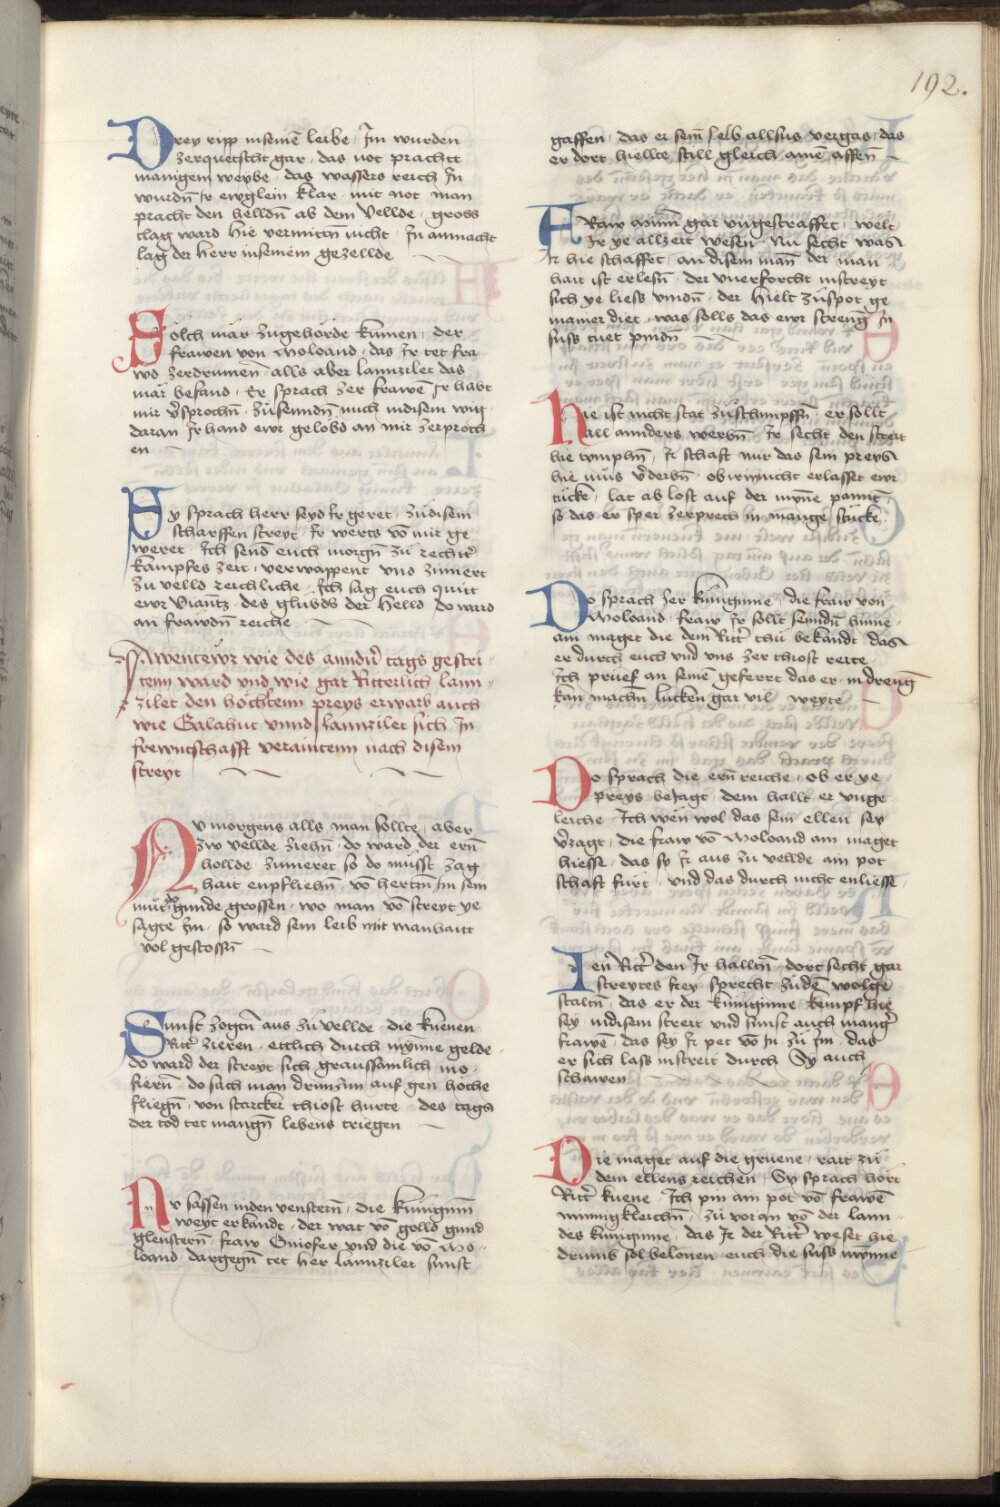 192.
Drey ripp inseinē leibe · Im wurden
zerquetscht gar · das not prachtt
manigem weybe · das wassers reich In
wurdn̄ Ir ewglein klar · mit not man
pracht den helldn̄ ab dem Vellde · gross
clag ward hie vermitan̄ nicht · In anmacht
lag der herr inseinem gezellde
Sölch mär zugehörde kumen · der
frawen von Moloand · das Ir tet fra
wd zerdrumen̄ · alls aber lannzilet das
mär befand · Er sprach zer frawē Ir habt
mir v̄sprochn̄ · zusenndn̄ mich indisem wig
daran Ir hand ewr gelobd an mir zerproch
en
Ey sprach herr seyd Ir geret · zudisem
scharffen streyt · Ir werts vō mir ge
weret · Ich send euch morgn̄ zu rechtr̄
kampfes zeit · verwappent vnd zimiert
zu velld reichliche · Ich sag euch quitt
ewr viantz · des glubds der helld do ward
an frawdn̄ reiche
Awentewr wie des anndr̄ tags gestri-
tenn ward vnd wie gar Ritterlich lann-
zilet den höchstenn preys erwarb auch
wie Galahut vnnd lannzilet sich In
frewntschafft verainttenn nach disem
streyt
Nv morgens alls man sollte · aber
zw vellde ziehn̄ · do ward der ern̄
hollde · zimieret so do müsst zag
hait enpfliehn̄ · vō hertzn̄ Im sein
mut gunde grossen · wo man vō streyt ye
sagte Im · so ward sein leib mit manhaitt
vol gestossn̄
Sunst zogtn̄ aus zu vellde · die kuenen
Ritr̄ zieren · ettlich durch mynne gelde
do ward der streyt sich graussamlich mo-
fiern̄ · do sach man drunzun̄ auf gen hoche
fliegn̄ · von starcker thiost hurte · des tags
der tod tet mangn̄ lebens triegen
Nv sassen inden venstern̄ · die kunigunn̄
weyt erkandt · der wat vō golld gund
glenstern̄ · fraw Ginofer vnd die vō Mo-
loand dargegn̄ tet her lannzilet sunst
gaffen · das er sein selb allsus vergas · das
er dort hiellte still gleich ainē affen̄
FRaw Minn̄ gar vngestraffet · welt
Ir ye allzeit wesen · Nu secht was
Ir hie schaffet · an disem man̄ der man
hait ist erlesn̄ · der vnerforcht instreyt
sich ye liess vindn̄ · der hielt zuspot ge
mainer diet · was solls das ewr streng In
suss tuet pindn̄
Hie ist nicht stat zuschimpffn̄ · er sollt
all annders werbn̄ · Ir secht den streit
hie tymphn̄ · Ir schaft nur das sein preys
hie mus v̄derbn̄ · ob irm nicht erlasset ewr
tücke · lat ab lost auf der mynne pannt
so das er sper zerprech in mange stucke
Do sprach zer kuniginne · die fraw von
Moloand · fraw Ir sollt senndn̄ hinne
ain maget die dem Ritr̄ thu bekandt das
er durch euch vnd vns zer thiost reite
Ich pruef an seinē geferrt das er in drenḡ
kan machn̄ lucken gar vil weyte
Do sprach die ern̄ reiche · ob er ye
preys beJagt · dem hallt er vnge
leiche · Ich wen wol das sein ellen sey
v̄zagt · die fraw vō Moloand ain maget
hiesse · das sy Ir aus zu vellde ain pot
schaft furt · vnd das durch nicht enliesse
Ien̄ Ritr̄ den Ir halltn̄ · dort secht gar
streytes frey · sprecht zudē wolge
staltn̄ · das er der kuniginne kempf hie
sey · indisem streit vnd sunst auch mangr̄
frawē · das sey Ir pet vō In zu Im · das
er sich lass instreit durch Sy auch
schawen
Die maget auf die gruene · rait zu
dem ellens reichen · Sy sprach hört
Ritr̄ kuene · Ich pin ain pot vō frawē
mynnigkleichn̄ · zu voran vō der lann-
des kuniginne · das Ir der Ritr̄ weset hie
drumb sol belonen · euch die suss mynne